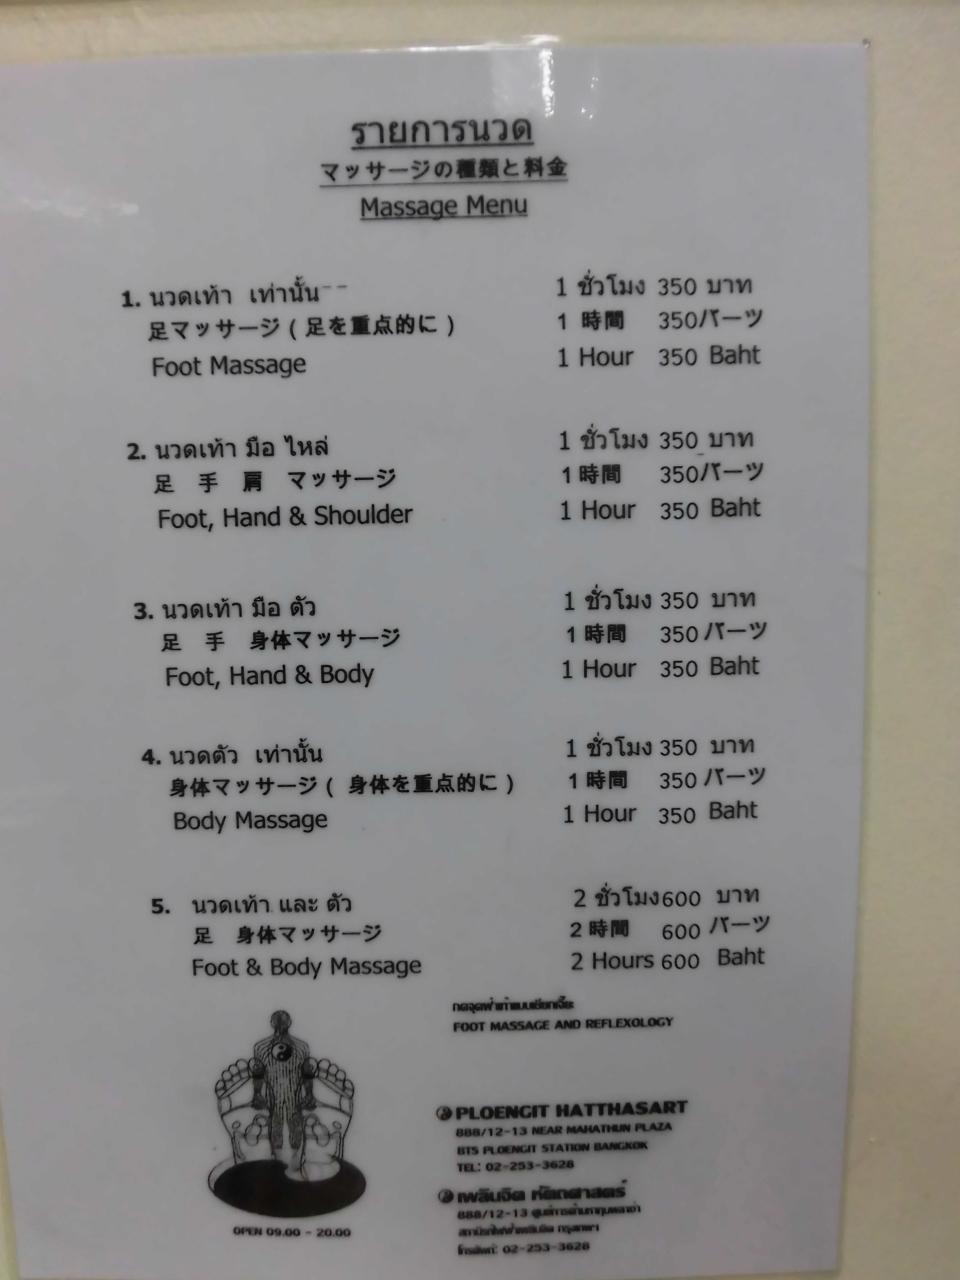 รายการนวด
マッサージの種類と料金
Massage Menu
1. นวดเท้า เท่านั้น 1 ชั่วโมง 350 บาท
足マッサージ ( 足を重点的に ) 1 時間 350バーツ
Foot Massage 1 Hour 350 Baht
2. นวดเท้า มือ ไหล่ 1 ชั่วโมง 350 บาท
足 手 肩 マッサージ 1 時間 350バーツ
Foot, Hand & Shoulder 1 Hour 350 Baht
3. นวดเท้า มือ ตัว 1 ชั่วโมง 350 บาท
足 手 身体マッサージ 1 時間 350 バーツ
Foot, Hand & Body 1 Hour 350 Baht
4. นวดตัว เท่านั้น 1 ชั่วโมง 350 บาท
身体マッサージ ( 身体を重点的に ) 1 時間 350 バーツ
Body Massage 1 Hour 350 Baht
5. นวดเท้า และ ตัว 2 ชั่วโมง 600 บาท
足 身体マッサージ 2 時間 600 バーツ
Foot & Body Massage 2 Hours 600 Baht
กดจุดฝ่าเท้าแบบ
FOOT MASSAGE AND REFLEXOLOGY
PLOENGIT HATTHASART
888/12-13 NEAR MAHATHUN PLAZA
BTS PLOENGIT STATION BANGKOK
TEL: 02-253-3628
เพลินจิต หัตถศาสตร์
888/12-13
สถานีรถไฟฟ้าเพลินจิต กรุงเทพฯ
โทรศัพท์: 02-253-3628
OPEN 09.00 - 20.00